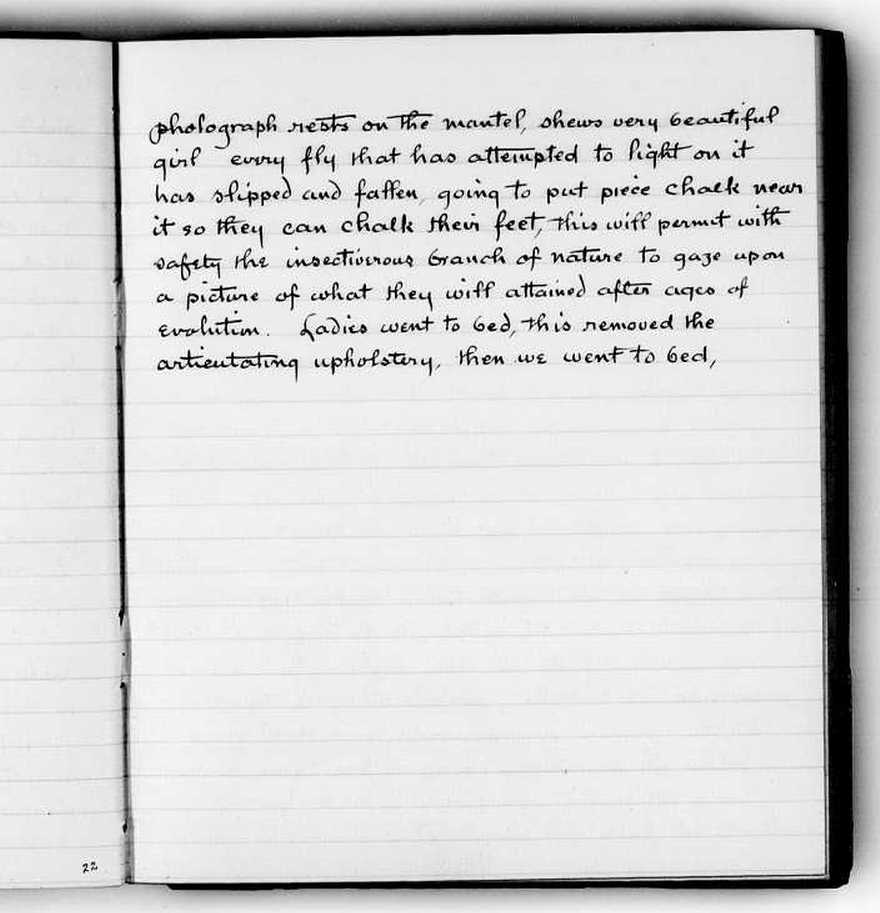 photograph rests on the mantel, shews very beautiful
girl every fly that has attempted to light on it
has slipped and fallen, going to put piece chalk near
it so they can chalk their feet, this will permit with
safety the insectiverous branch of nature to gaze upon
a picture of what they will attained after ages of
evolution. Ladies went to bed, this removed the
articutating upholstery, then we went to bed,
22